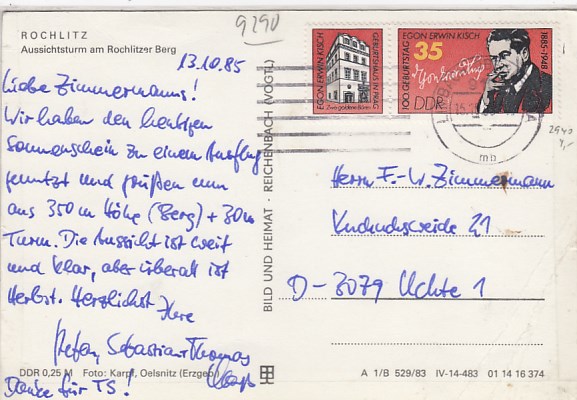 ROCHLITZ
Aussichtsturm am Rochlitzer Berg
9290
13.10.85
Liebe Zimmermanns!
Wir haben den heutigen
Sonnenschein zu einem Ausflug
genutzt und grüßen nun
aus 350 m Höhe (Berg) + 30 m
Turm. Die Aussicht ist weit
und klar, aber überall ist
Herbst. Herzlichst Ihre
Stefan, Sebastian + Thomas
Danke für TS!
DDR 0,25 M Foto: Karpf, Oelsnitz (Erzgeb.)
BILD UND HEIMAT · REICHENBACH (VOGTL)
EGON ERWIN KISCH
GEBURTSHAUS IN PRAG
100. GEBURTSTAG EGON ERWIN KISCH
35
DDR
1885-1948
mb
2940
Herrn F.-W. Zimmermann
21
D-3079 Uchte 1
A 1/B 529/83 IV-14-483 01 14 16 374